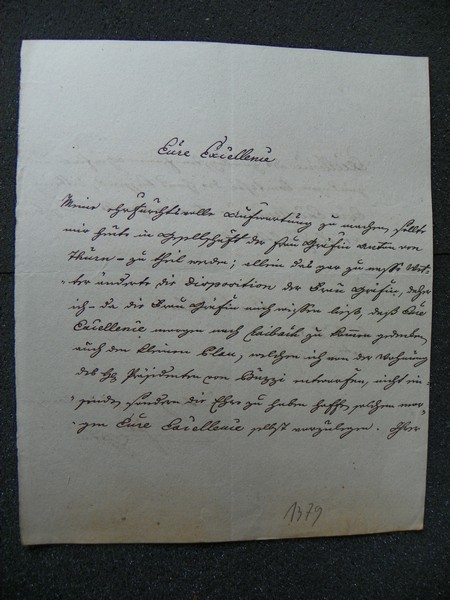 Eure Excellence
Meine ehrfurchtsvolle Aufwartung zu machen, sollte
mir heute in Gesellschaft der Frau Gräfin von
Thurn – zu theil werden; allein das gar zu nasse Wet-
ter änderte die Disposition der Frau Gräfin, daher
ich da die Frau Gräfin mich wissen ließ, daß Eure
Excellence morgen nach Laibach zu kommen gedenken,
auch den kleinen Plan, welchen ich von der Wohnung
des H Präsidenten von entworfen, nicht
sondern die Ehre zu haben hoffe, solchen mor-
gen Eure Excellence selbst vorzulegen.
1379